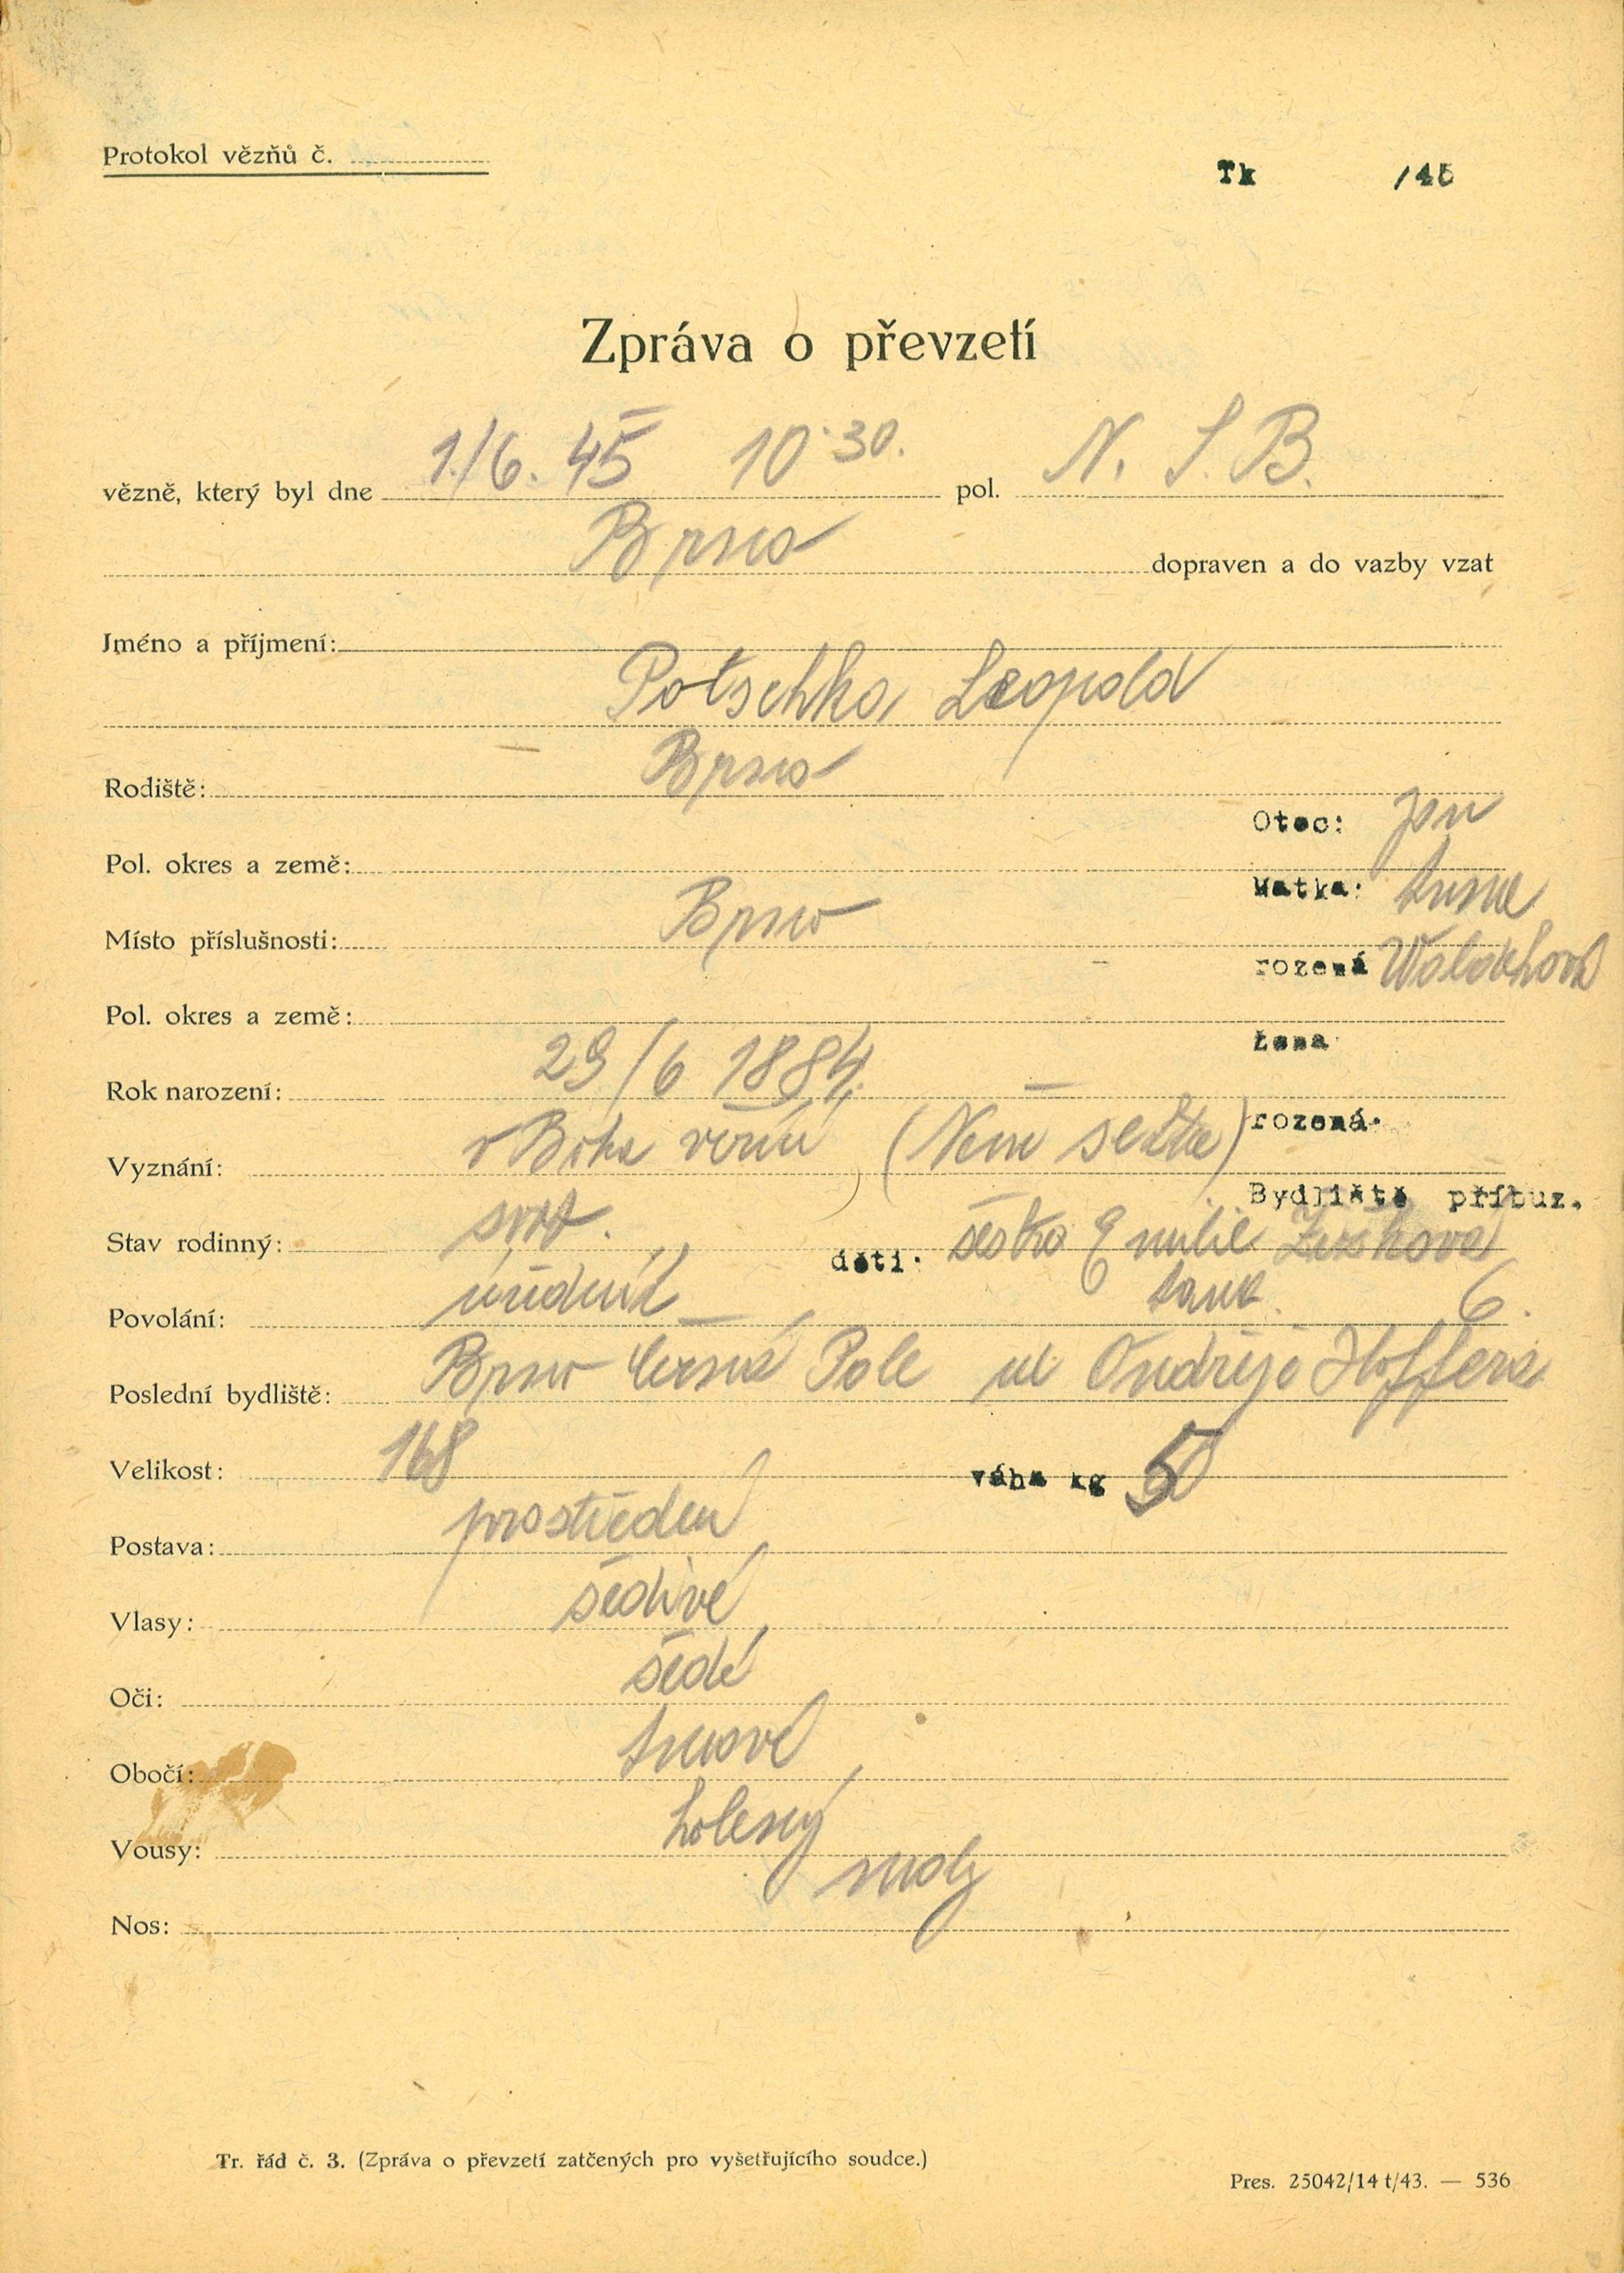 Protokol vězňů č.
Tk /45
Zpráva o převzetí
vězně, který byl dne 1./6. 45 10·30. pol. N. S. B.
Brno dopraven a do vazby vzat
Jméno a příjmení:
Potschka Leopold
Rodiště: Brno
Otec: Jan
Pol. okres a země:
Matka: Anna
Místo příslušnosti: Brno
rozená
Pol. okres a země:
Žena
Rok narození: 29/6 1884
rozená.
Vyznání: v Boha věřící (Není sekta)
Bydliště příbuz.
Stav rodinný: svob. děti. Emilie
Povolání: úředník 6.
Poslední bydliště: Brno Černá Pole ul Ondřeje Hoffera
Velikost: 168 váha kg 50
Postava: prostřední
Vlasy: šedivé
Oči: šedé
Obočí: tmavé
Vousy: holený
Nos: malý
Tr. řád č. 3. (Zpráva o převzetí zatčených pro vyšetřujícího soudce.)
Pres. 25042/14 t/43. — 536